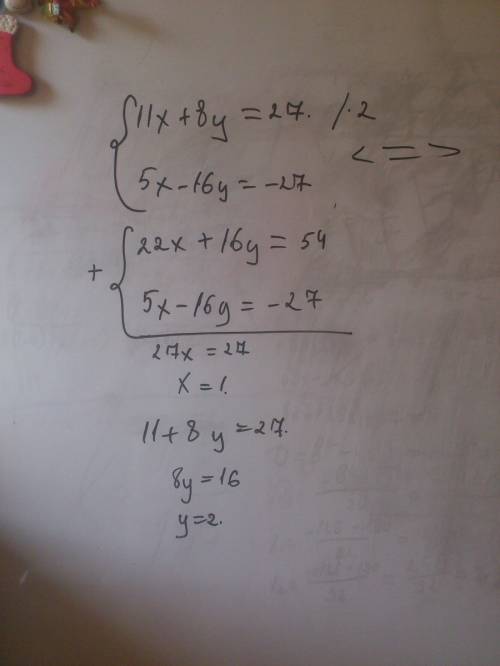 11x+8y=27. /·2
5x-16y=-27
<=>
+ 22x+16y=54
5x-16y=-27
27x=27
x=1.
11+8y=27.
8y=16
y=2.